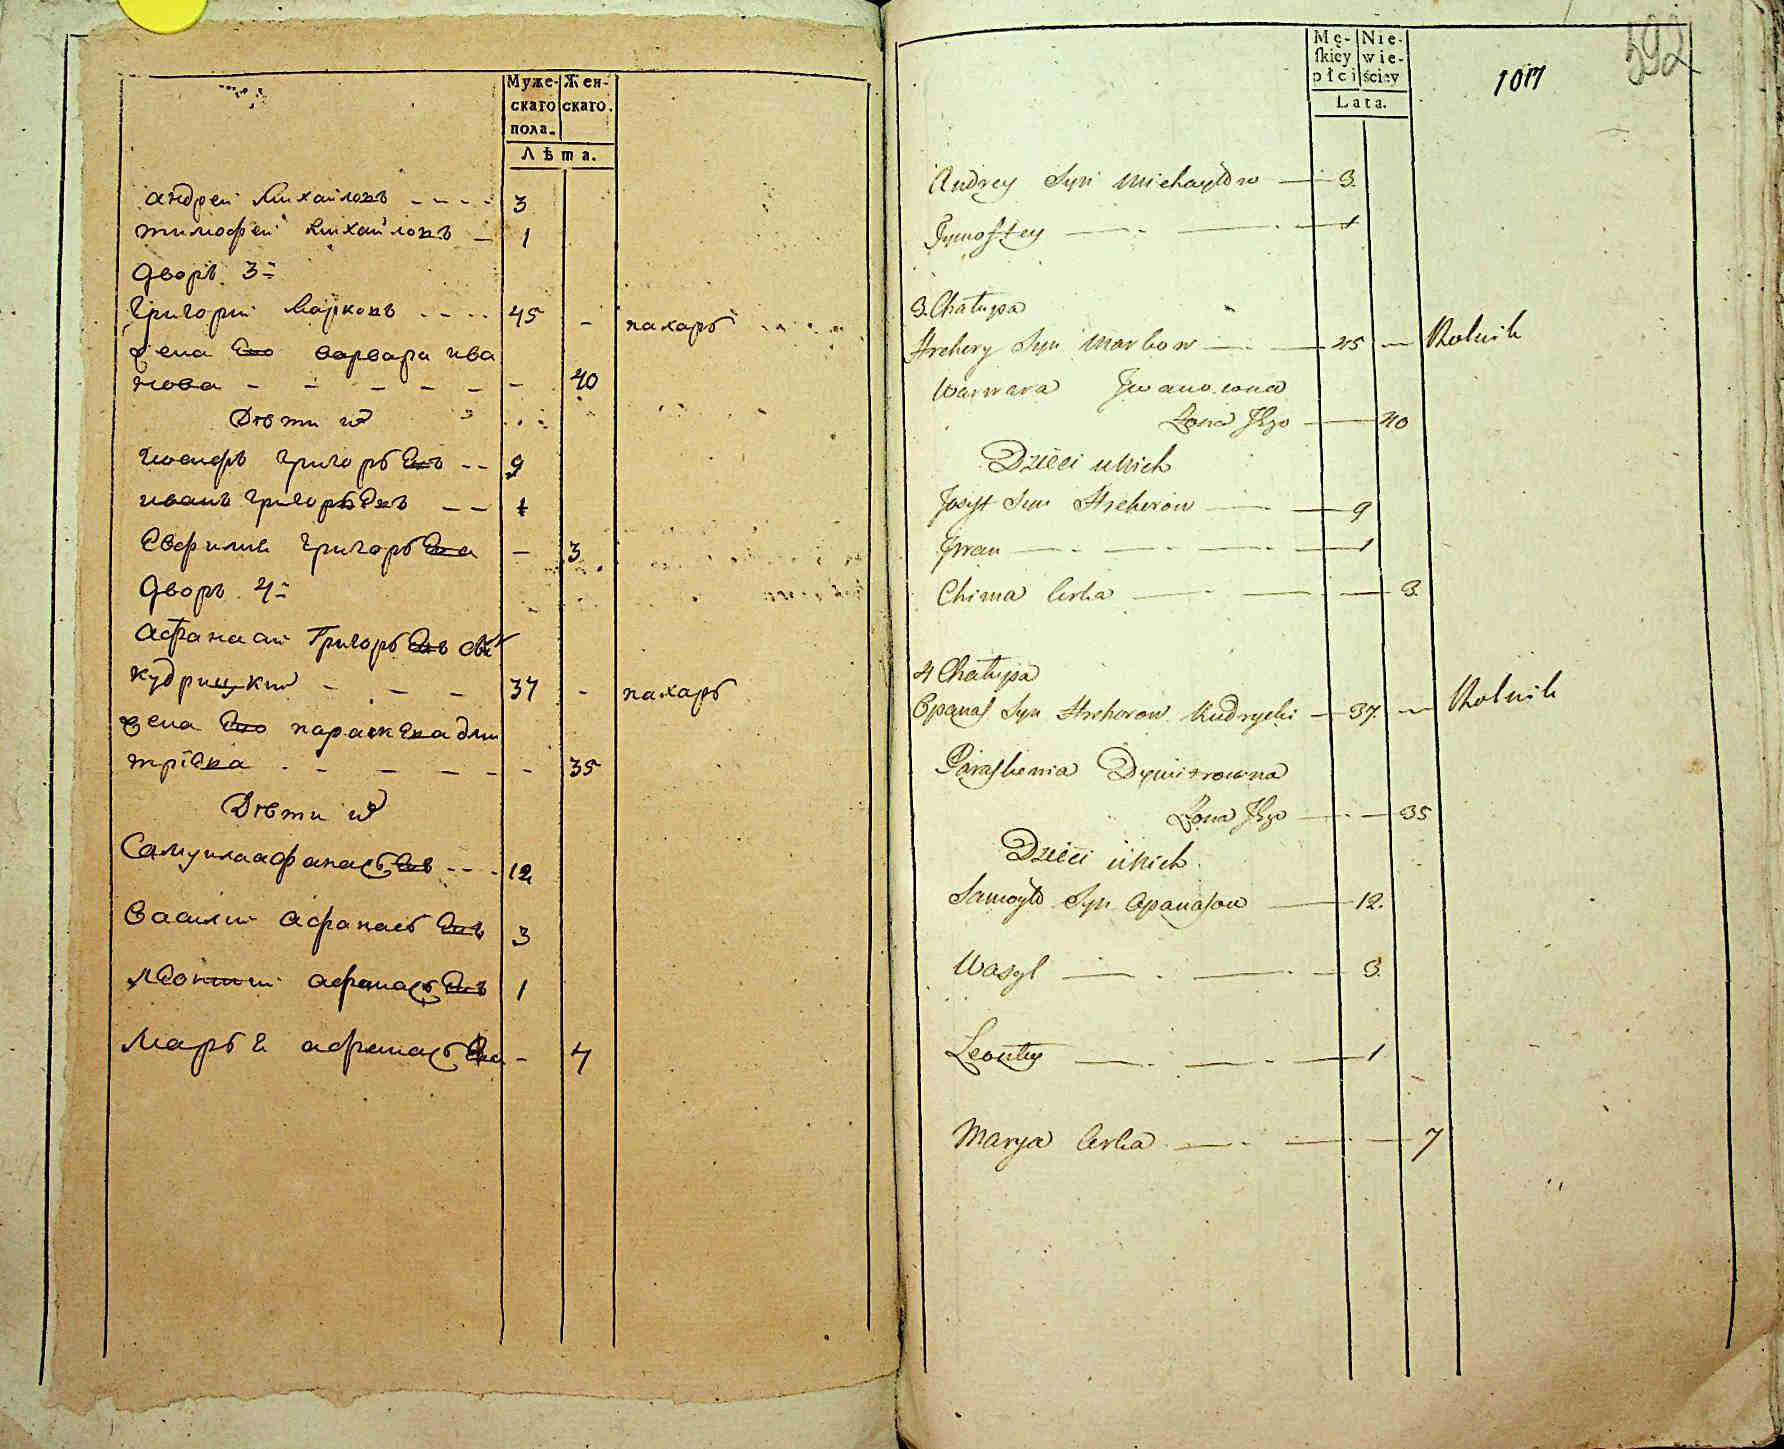 Муже-
скаго
пола.
Жен-
скаго.
Лѣта.
андрей Михайловъ - - - - 3
тимофей михайловъ - 1
дворъ 3й
Григорий Марковъ - - - - 45 - пахарь
жена Его варвара ива
нова - - - - - - 40
Дѣти ихъ
иосифъ григорьЕвъ - - 9
иванъ григорьЕвъ - - 1
Евфимия григорьЕва - 3
дворъ 4й
афанасий ГригорьЕвъ сынъ
кудрицкий - - - 37 - пахарь
жена Его параскЕва дми
триЕва - - - - - - 35
Дѣти ихъ
Самуила афанасьЕвъ - - - 12
Василий афанасьЕвъ 3
лЕонтий афанасьЕвъ 1
Марья афанасьЕва - 7
Mę-
skiey
płci
Nie-
wie-
ściey
Lata.
1017
592
Andrey Syn Michayłow — 3.
Tymoftey — . — . — 1
3. Chałupa
Hrehory Syn Markow — . — 45 — Rolnik
Warwara Jwanowna
Zona Jego — 40
Dzieci unich
Josyf Syn Hrehorow — . — 9
Jwan — . — . — . — 1
Chima Corka — . — — 3.
4 Chałupa
Opanas Syn Hrehorow Kudrycki — 37. — Rolnik
Paraskewia Dymitrowna
Zona Jego — . — 35
Dzieci unich
Samoyło Syn Opanasow — 12.
Wasyl — . — . — 3.
Leonty — . — . — . — 1
Marya Corka — . — . — 7